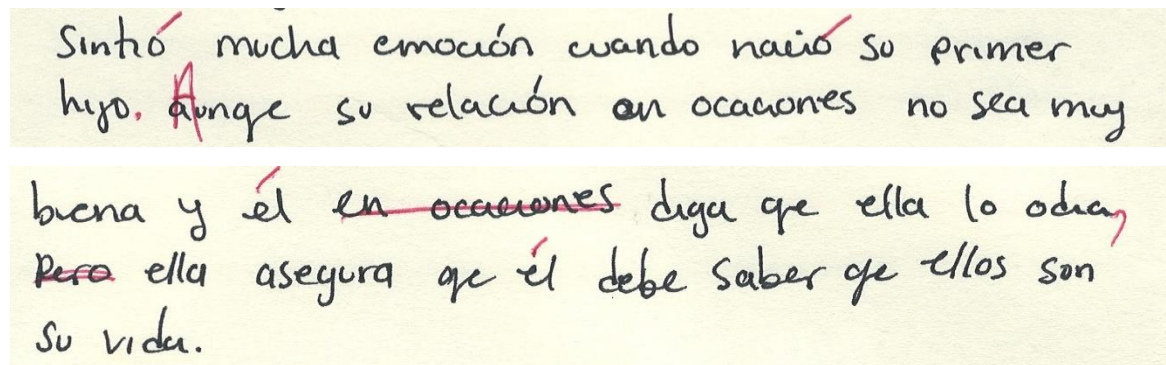 Sintió mucha emoción cuando nació su primer
hijo. Aunqe su relación en ocaciones no sea muy
buena y él en ocaciones diga qe ella lo odia,
Pero ella asegura qe él debe saber qe ellos son
su vida.